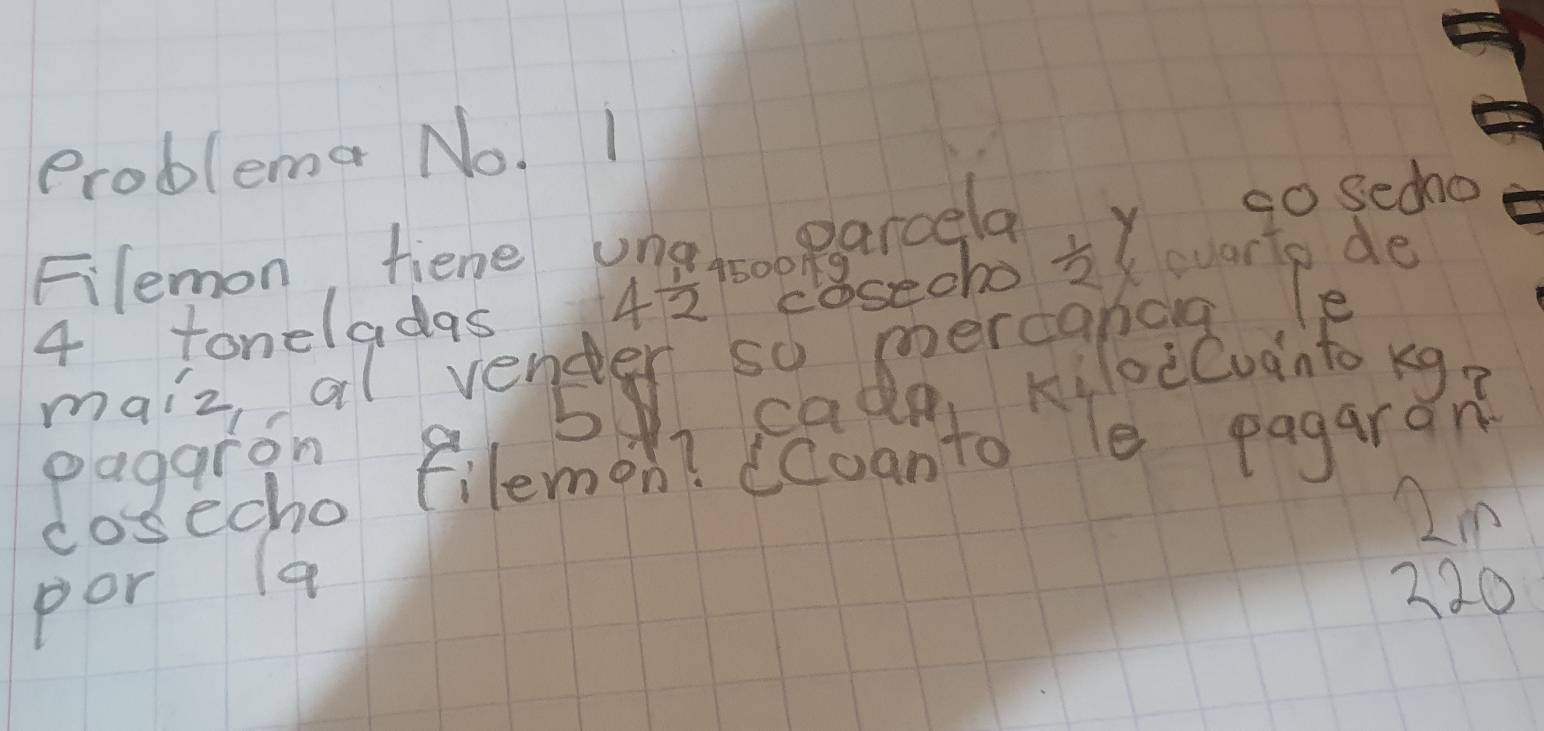 Problema No. 1
Filemon, tiene una parcela y cosecho
4 toneladas 4 1/2 4500 kg cosecho 1/2 y cuarto de
maíz, al vender su mercancia le
pagarón a 5 cada kilo ¿Cuánto kg
cosecho Filemon? ¿Cuanto le pagaran?
por la
2m
220